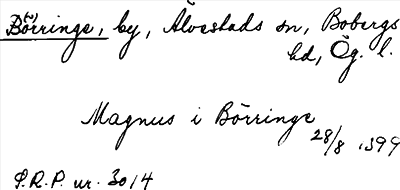 Börringe, by, Älvestads sn, Bobergs
hd, Ög. l.
Magnus i Börringe
28/8 1399
S.R.P. nr. 3014